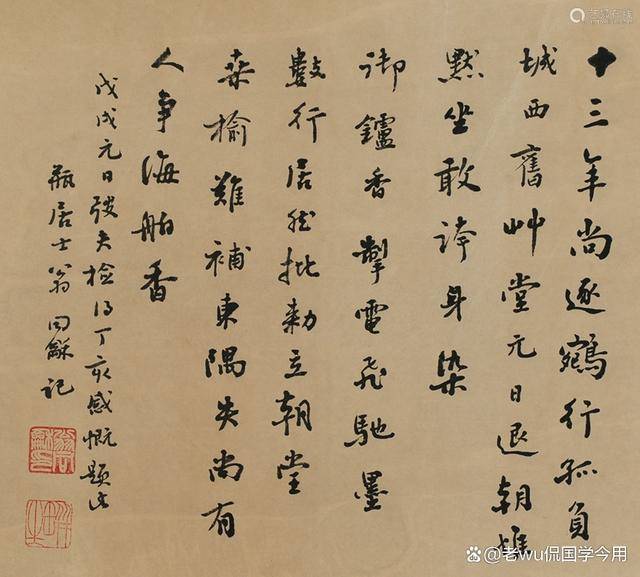 十三年尚逐鵷行孤負
城西舊艸堂元日退朝惟
默坐敢誇身染
御鑪香掣電飛馳墨
數行居然批勅立朝堂
桑榆難補東隅失尚有
人爭海舶香
戊戌元日弢夫檢得丁亥感慨題此
瓶居士翁同龢記
@老wu侃国学今用